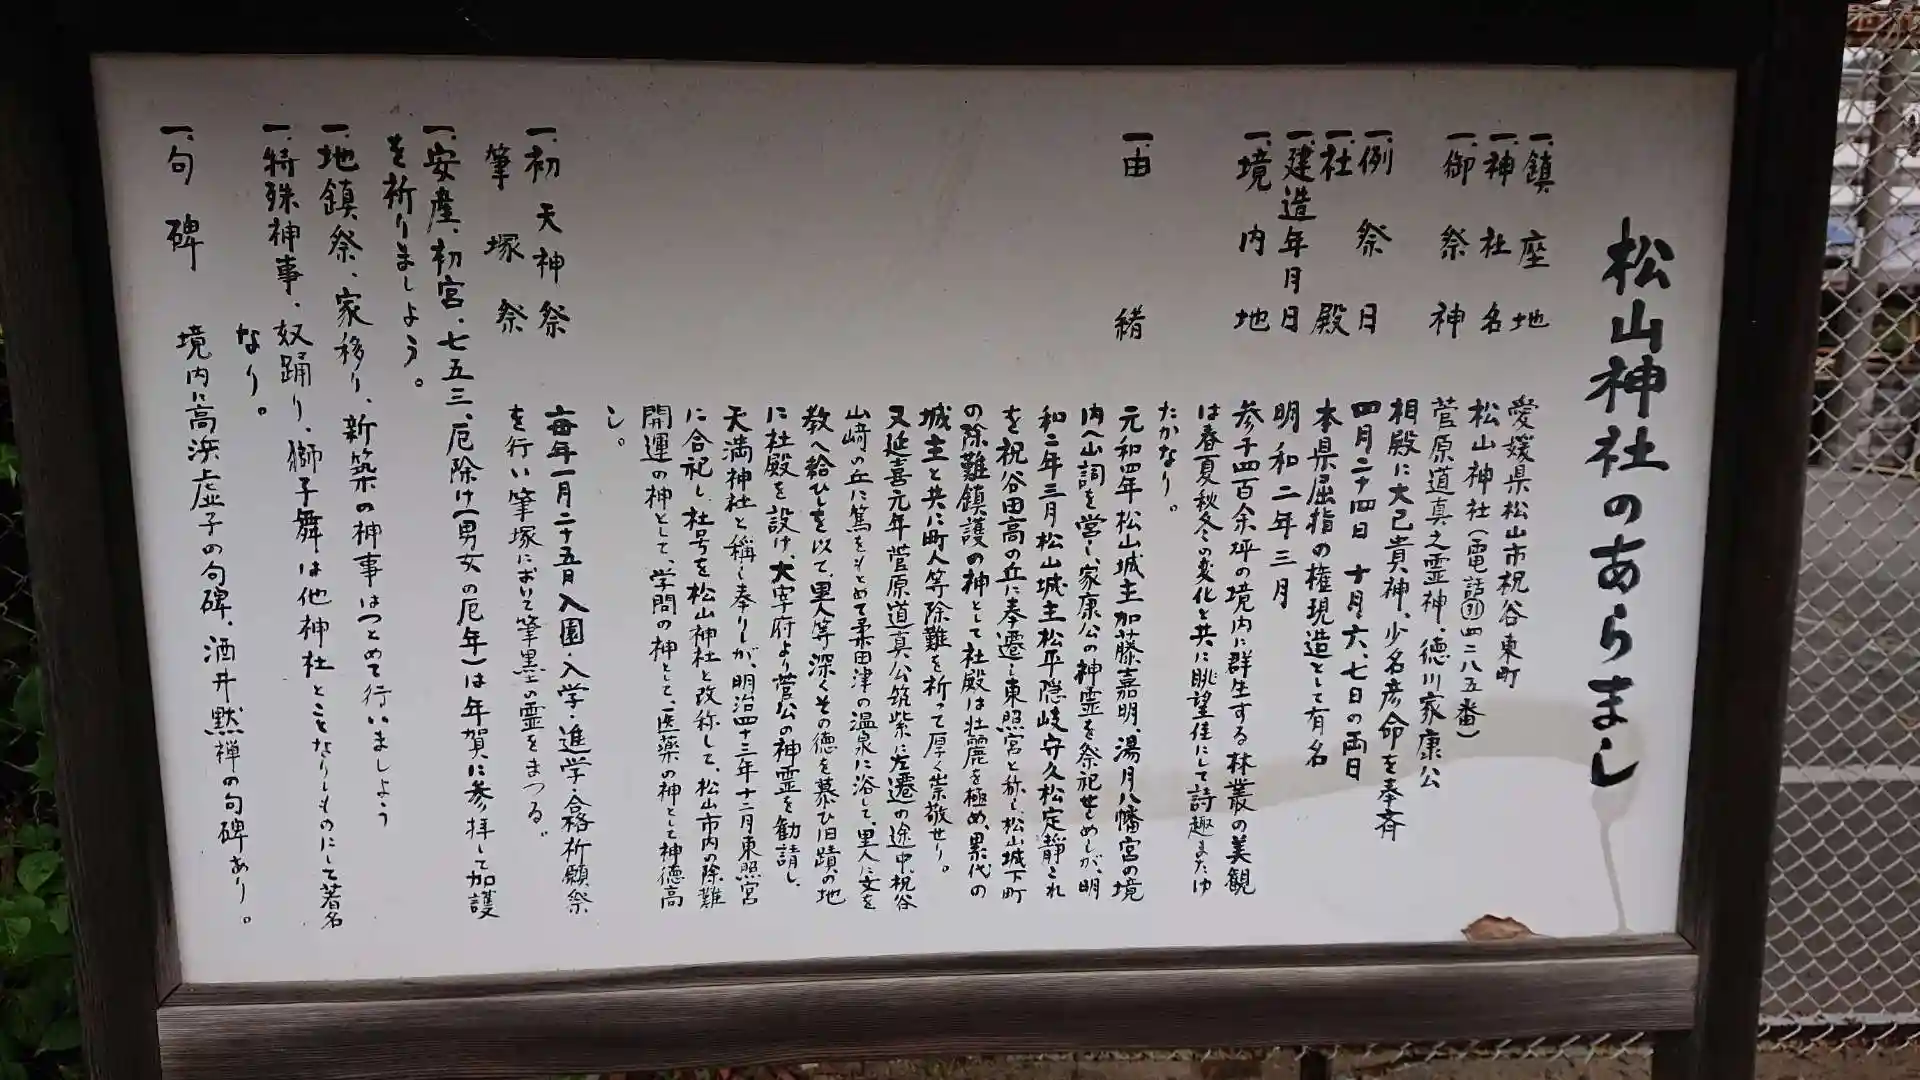 松山神社のあらまし
一、鎮座地 愛媛県松山市祝谷東町
一、神社名 松山神社(電話㉛四二八五番)
一、御祭神 菅原道真之霊神、徳川家康公
相殿に大己貴神、少名彦命を奉斉
一、例祭日 四月二十四日 十月六、七日の両日
一、社殿 本県屈指の権現造として有名
一、建造年月日 明和二年三月
一、境内地 参千四百余坪の境内に群生する林叢の美観
は春夏秋冬の変化と共に眺望佳にして詩趣またゆ
たかなり。
一、由緒 元和四年松山城主加藤嘉明、湯月八幡宮の境
内へ山詞を営し、家康公の神霊を祭祀せしめしが、明
和二年三月松山城主松平隠岐守久松定静これ
を祝谷田高の丘に奉遷し東照宮と称し、松山城下町
の除難鎮護の神として、社殿は壮麗を極め、累代の
城主と共に町人等除難を祈って厚く崇敬せり。
又延喜元年菅原道真公筑紫に左遷の途中、祝谷
山﨑の丘に篤をもとめて柔田津の温泉に浴して、里人に文を
教へ給ひしを以て、里人等深くその徳を慕ひ旧蹟の地
に社殿を設け、大宰府より菅公の神霊を勧請し、
天満神社と称し奉りしが、明治四十三年十二月東照宮
に合祀し、社号を松山神社と改称して、松山市内の除難
開運の神として、学問の神として、医薬の神として神徳高
し。
一、初天神祭 毎年一月二十五日入園・入学・進学・合格祈願祭
筆塚祭 を行い筆塚において筆墨の霊をまつる。
一、安産、初宮、七五三、厄除け(男女の厄年)は年賀に参拝して加護
を祈りましょう。
一、地鎮祭、家移り、新築の神事はつとめて行いましょう
一、特殊神事、奴踊り、獅子舞は他神社とことなりしものにして著名
なり。
一、句碑 境内に高浜虚子の句碑、酒井黙禅の句碑あり。